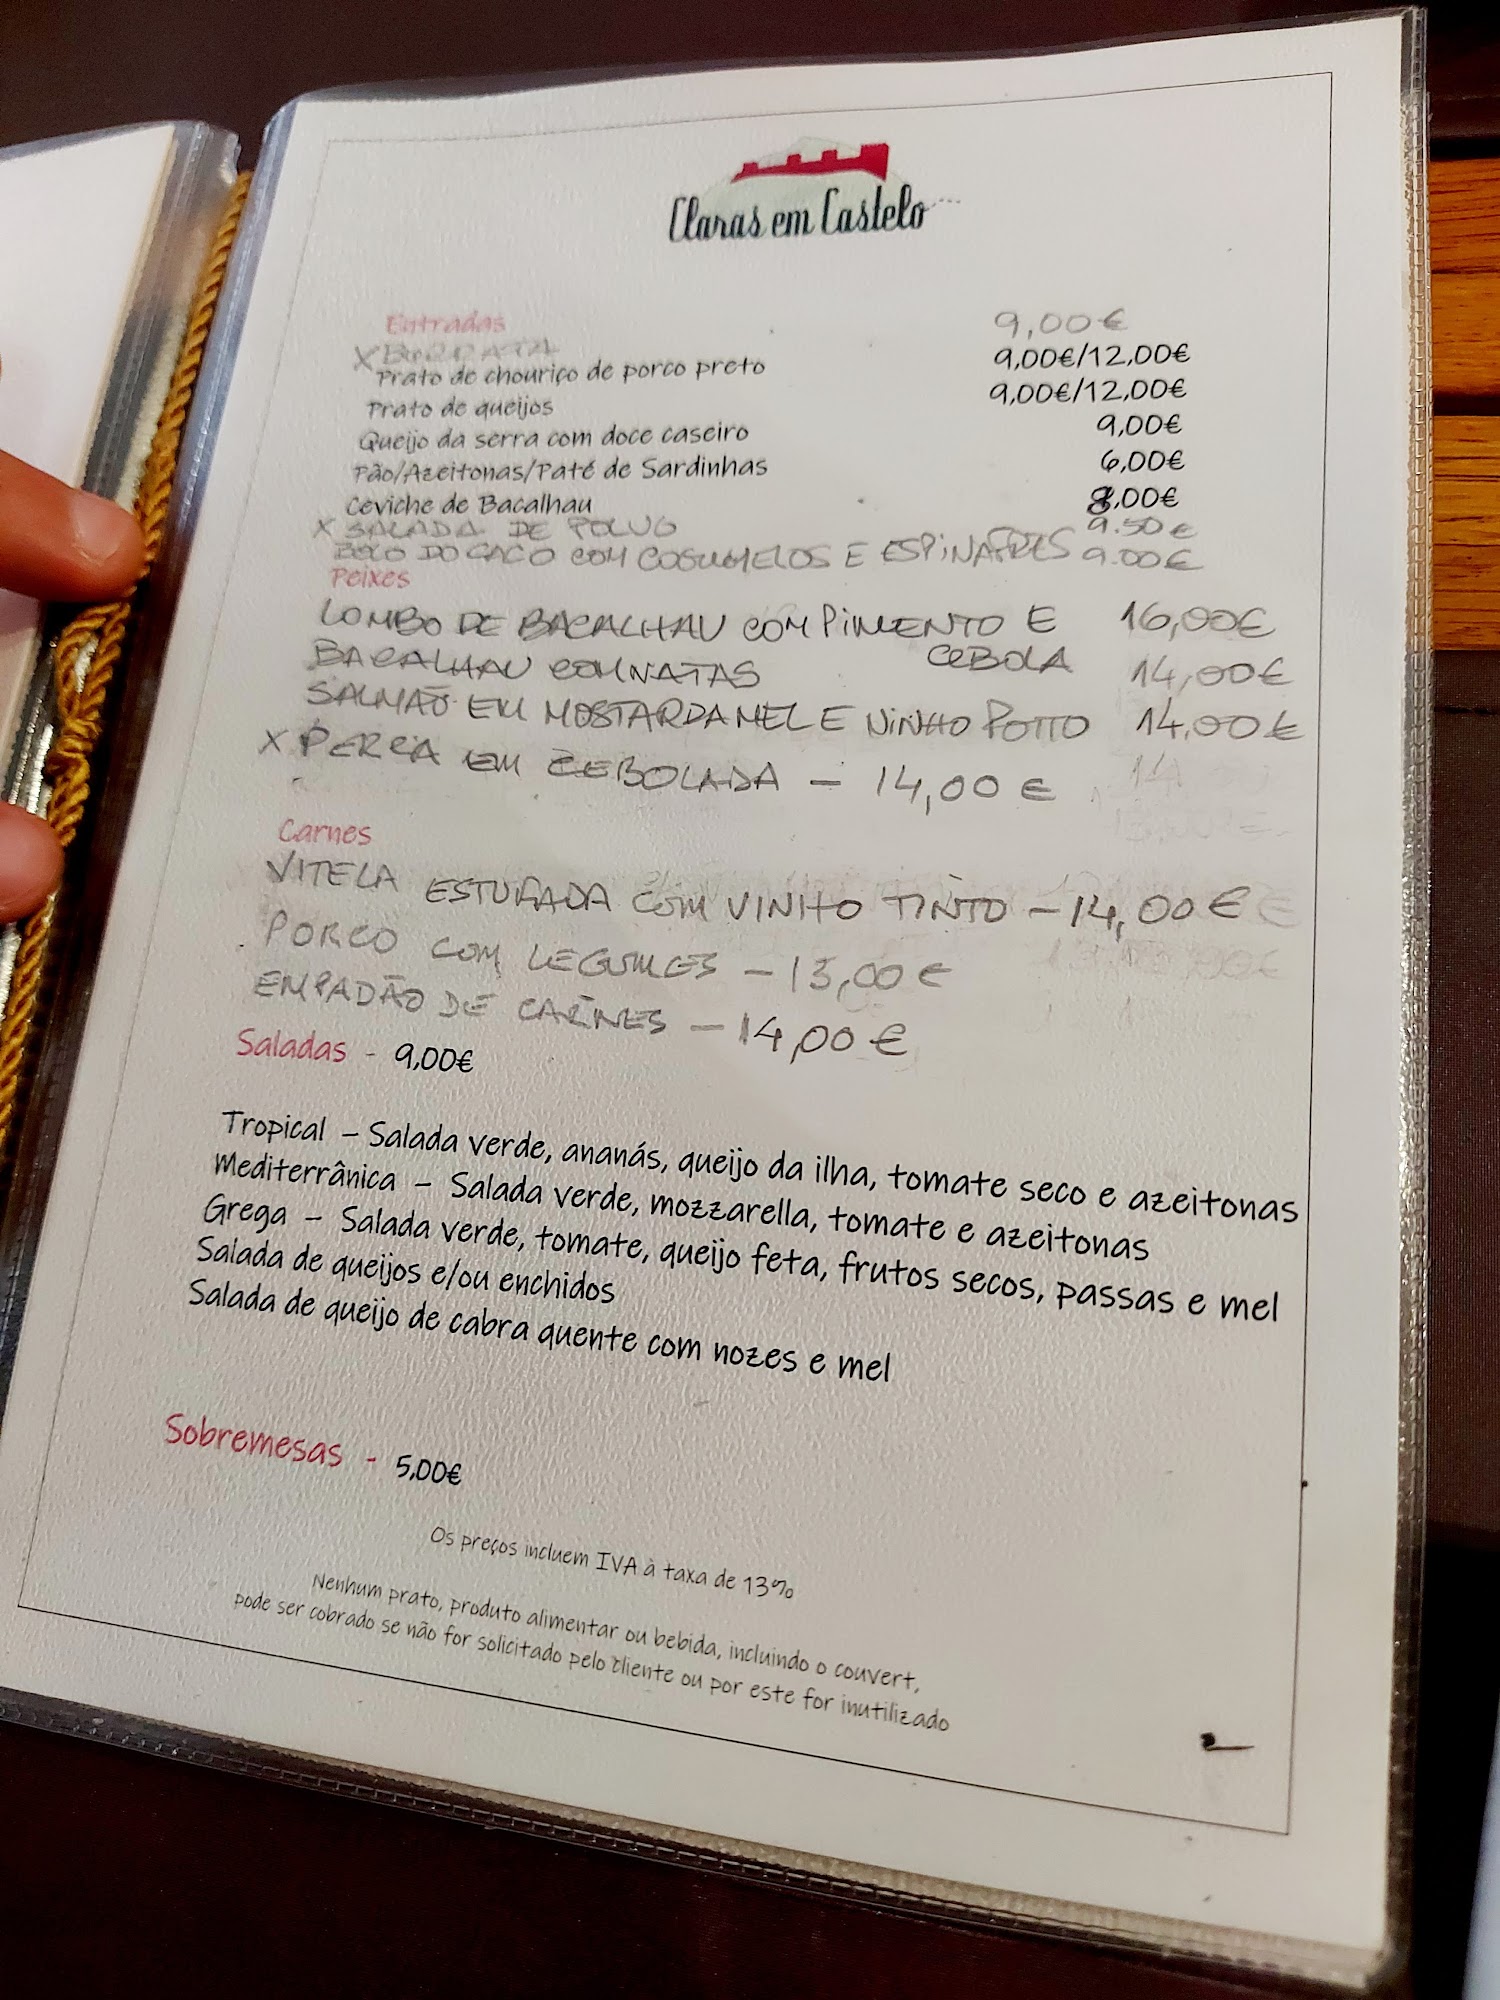 Claras em Castelo
Entradas
X BURRATA 9,00€
Prato de chouriço de porco preto 9,00€/12,00€
Prato de queijos 9,00€/12,00€
Queijo da serra com doce caseiro 9,00€
Pão/Azeitonas/Paté de Sardinhas 6,00€
Ceviche de Bacalhau 8,00€
X SALADA DE POLVO 9.50€
BOLO DO CACO COM COGUMELOS E ESPINAFRES 9.00€
Peixes
LOMBO DE BACALHAU COM PIMENTO E 16,00€
CEBOLA
BACALHAU COM NATAS 14,00€
SALMÃO EM MOSTARDA MEL E VINHO POTTO 14,00€
X PERCA EM CEBOLADA – 14,00€
Carnes
VITELA ESTUFADA COM VINHO TINTO – 14,00€
PORCO COM LEGUMES – 13,00€
EMPADÃO DE CARNES – 14,00€
Saladas - 9,00€
Tropical – Salada verde, ananás, queijo da ilha, tomate seco e azeitonas
Mediterrânica – Salada verde, mozzarella, tomate e azeitonas
Grega – Salada verde, tomate, queijo feta, frutos secos, passas e mel
Salada de queijos e/ou enchidos
Salada de queijo de cabra quente com nozes e mel
Sobremesas - 5,00€
Os preços incluem IVA à taxa de 13%
Nenhum prato, produto alimentar ou bebida, incluindo o couvert,
pode ser cobrado se não for solicitado pelo cliente ou por este for inutilizado